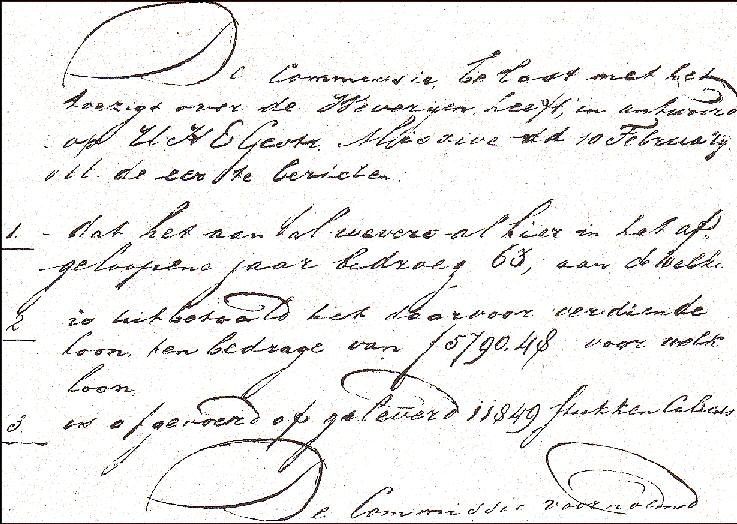 De Commissie, belast met het
toezigt over de Weveryen heeft, in antwoord
op U H E Gestr. Missive dd 10 February
ll. de eer te berichten.
1. dat het aantal wevers alhier in het af-
geloopene jaar bedroeg 63, aan dewelke
2 is uitbetaald het daarvoor verdiende
loon ten bedrage van f 5790.48 voor welk
loon
3. is afgevoerd of geleverd 11849 stukken
De Commissie voornoemd